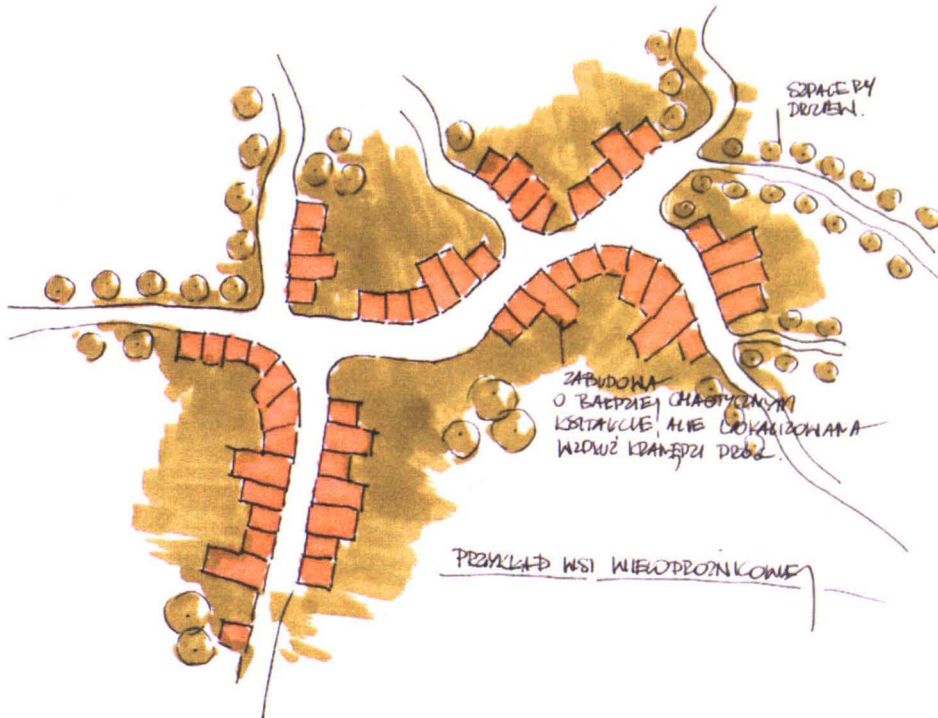 SZPALERY
DRZEW.
ZABUDOWA
O BARDZIEJ CHAOTYCZNYM
KSZTAŁCIE, ALE LOKALIZOWANA
WZDŁUŻ KRAWĘDZI DRÓG.
PRZYKŁAD WSI WIELODROŻNICOWEJ